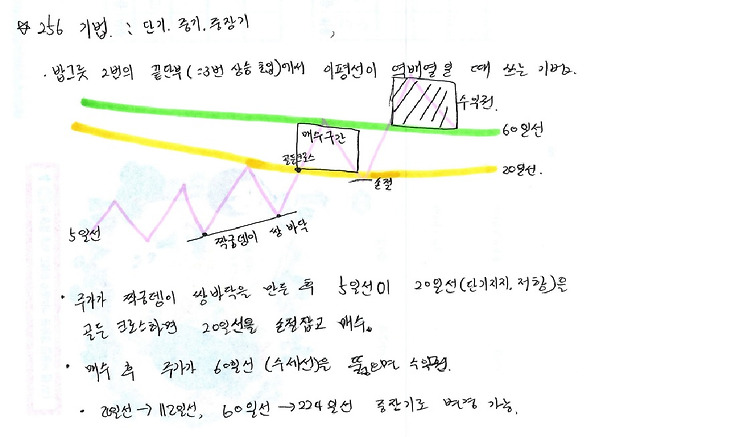 ☆ 256 기법. : 단기. 중기. 중장기
· 밥그릇 2번의 끝단부 (=3번 상승 초입)에서 이평선이 역배열일 때 쓰는 기법.
수익권.
매수구간
60일선
골든크로스
20일선.
손절
5일선
짝궁뎅이 쌍바닥
· 주가가 짝궁뎅이 쌍바닥을 만든 후 5일선이 20일선(단기지지, 저항)을
골든크로스하면 20일선을 손절잡고 매수.
· 매수 후 주가가 60일선 (수세선)을 뚫으면 수익권.
· 20일선→112일선, 60일선→224일선 중장기로 변경 가능.